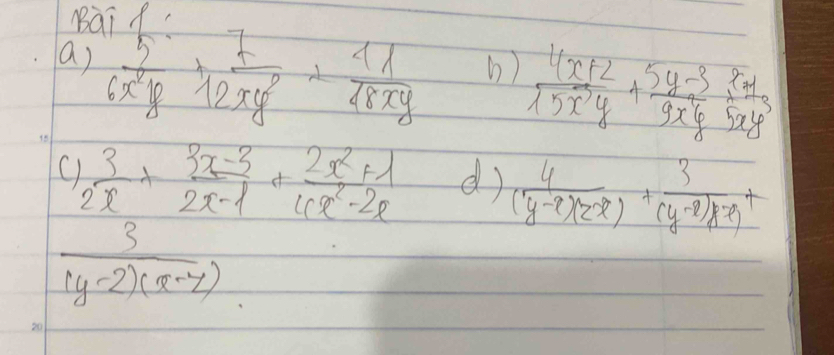 Bài 1:
a) 5/6x²y + 7/12xy² + 11/18xy b) 4x+2/15x³y + 5y-3/9x²y +/5xy³
c) 3/2x + 3x-3/2x-1 + 2x²+1/4x²-2x d) 4/(y-x)(z-x) + 3/(y-x) +
3/(y-z)(x-z)